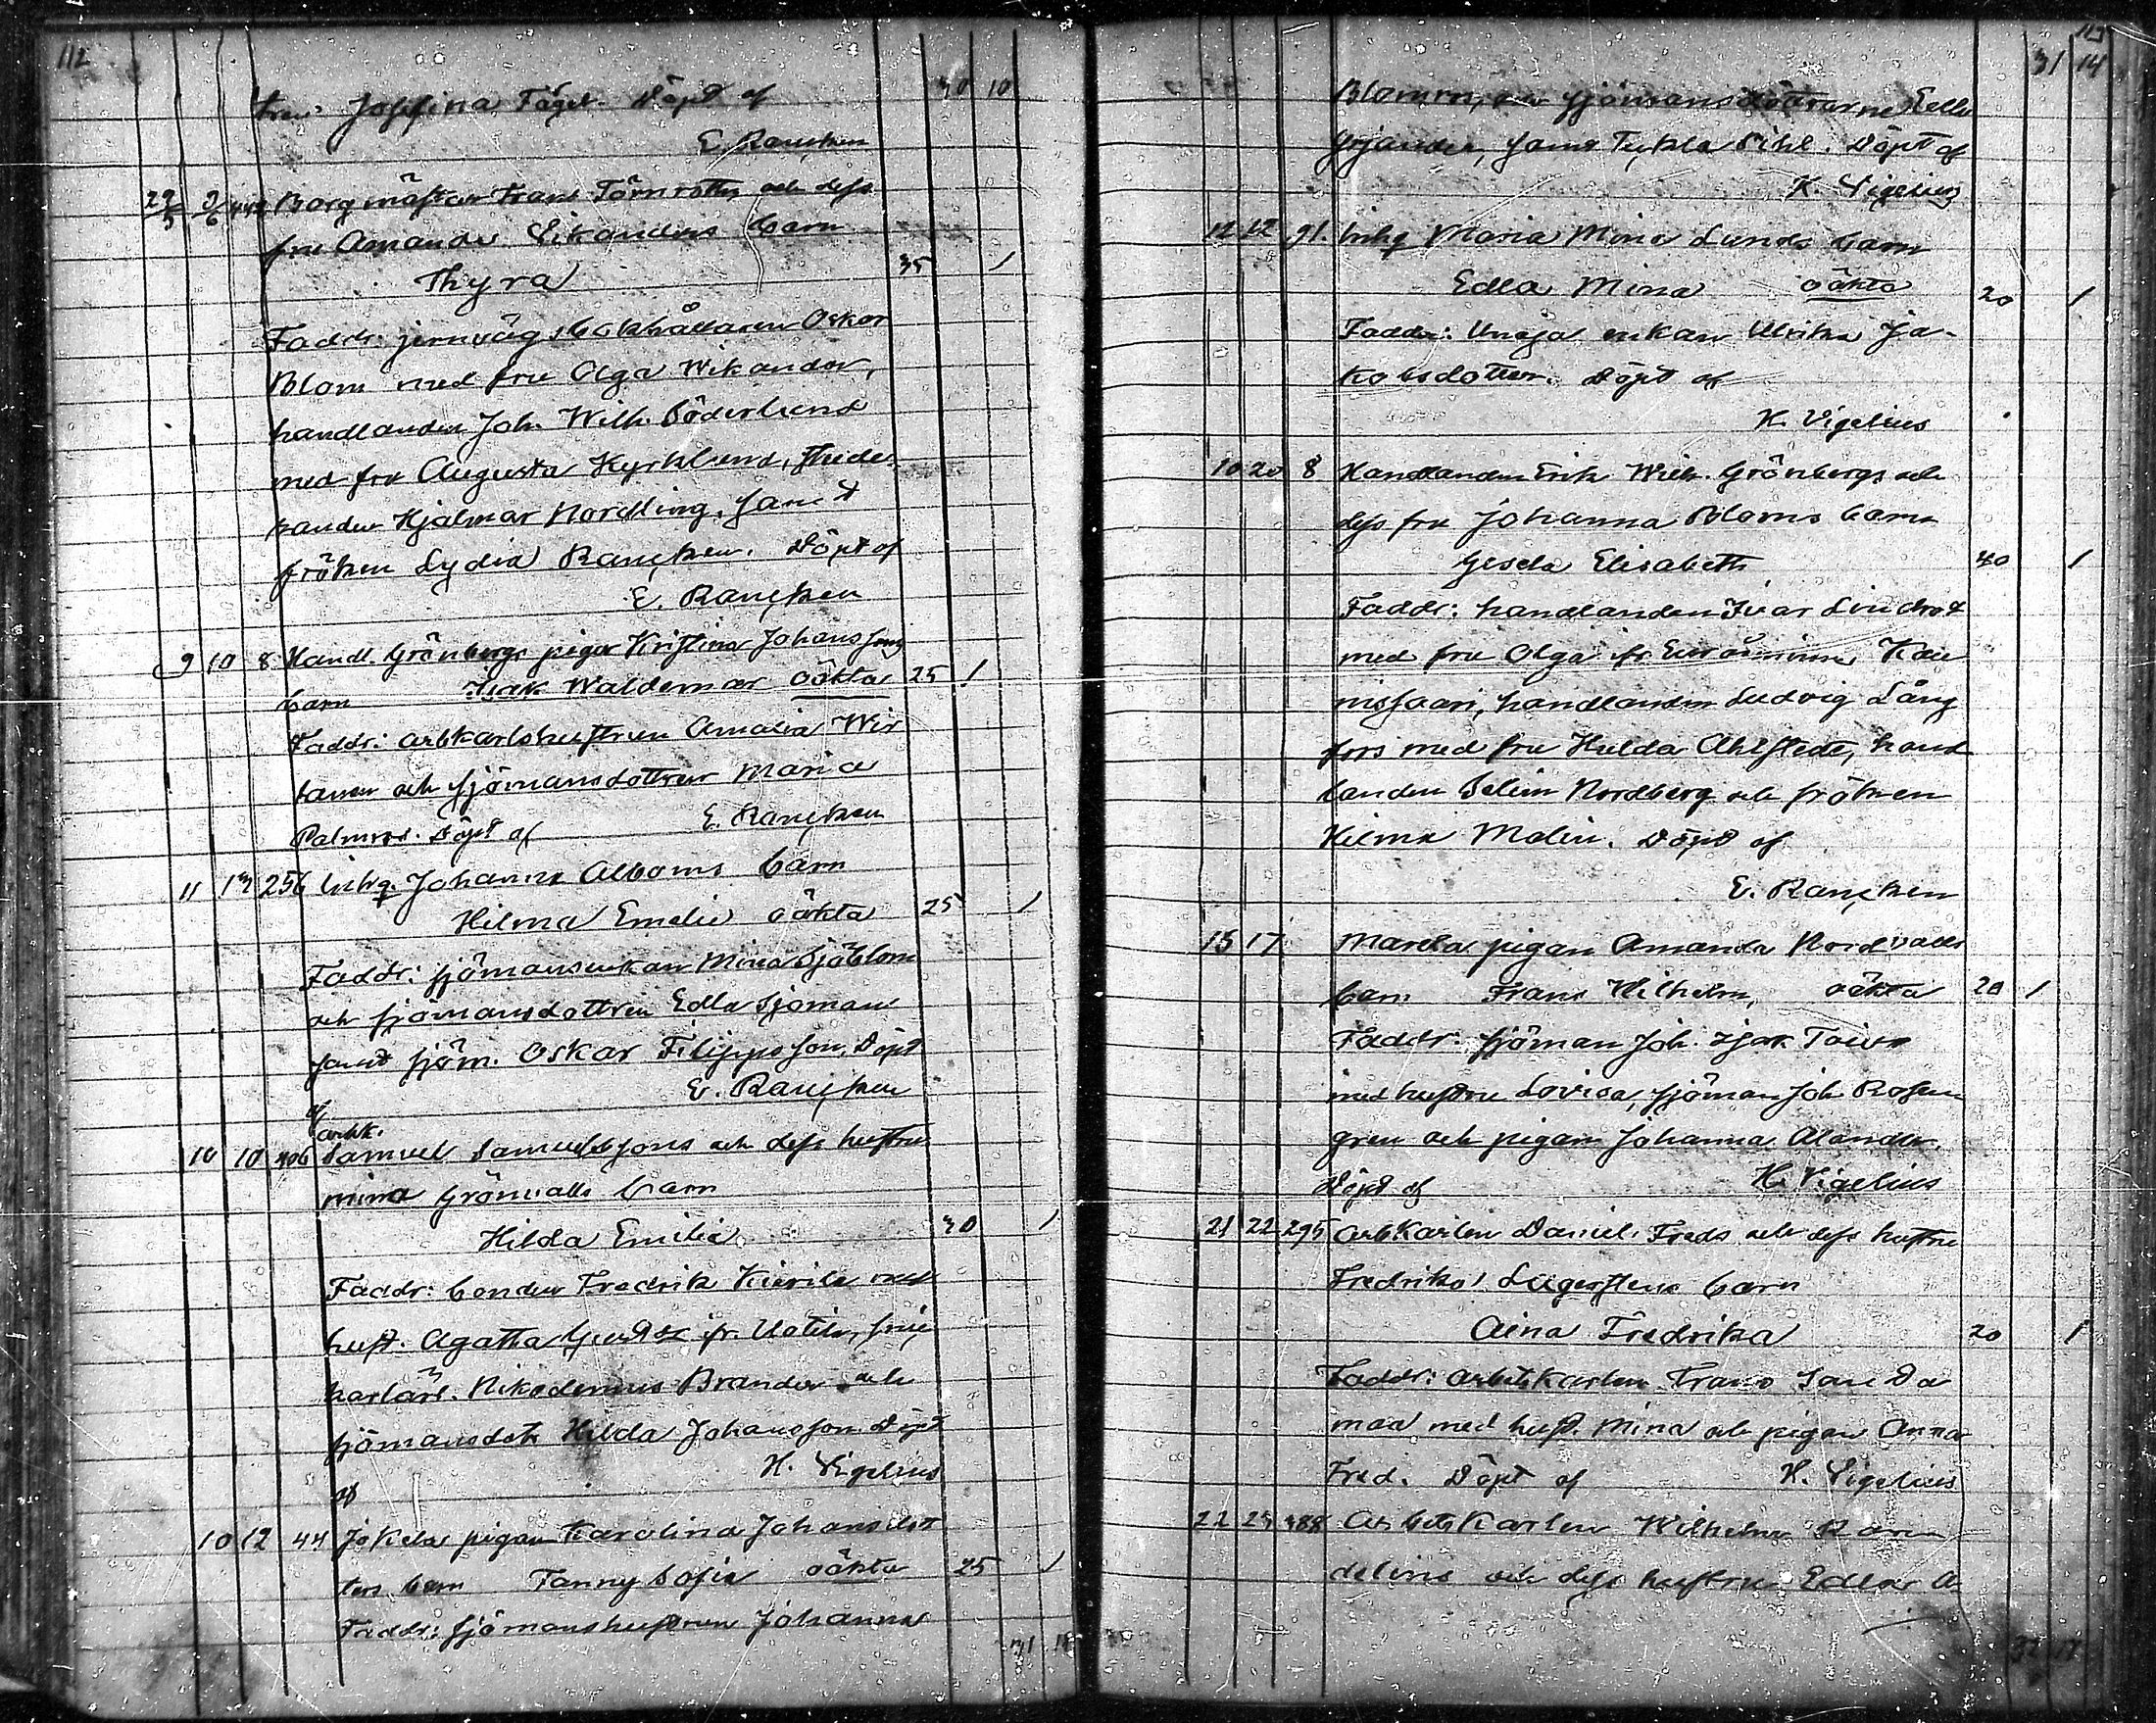 112
trun Josefina Fågel. Döpt af 30 10
E. Rancken
29/5 9/6 448 Borgmästar Frans Törnroths och dess
fru Amanda Vikanders barn
Thyra 35 1
Faddr: jernvägsbokhållaren Oskar
Blom med fru Olga Wikander,
handlanden Joh. Wilh. Söderlund
med fru Augusta Kyrklund, stude-
randen Hjalmar Nordling, samt
fröken Lydia Rancken. Döpt af
E. Rancken
9 10 8 Handl. Grönbergs pigas Kristina Johanssons
barn Isak Waldemar oäkta 25 1
Faddr: arbkarlshustrun Amalia Wir
tanen och sjömansdottren Maria
Palmros. Döpt af E. Rancken
11 13 256 Inhq. Johanna Alboms barn
Hilma Emelie oäkta 25 1
Faddr: sjömansenkan Mina Sjöblom
och sjömansdottren Edla Sjöman
samt sjöm. Oskar Filippsson. Döpt
af E. Rancken
10 10 406 arbk. Samuel Samuelssons och dess hustru
Mina Grönvalls barn
Hilda Emilia 30 1
Faddr: bonden Fredrik Kierile med
hust. Agatha fr. Uotila,
Nikodemus Brander och
sjömansdot. Hilda Johansson. Döpt
af H. Vigelius
10 12 44 Jokela pigan Karolina Johansdot
ters barn Fanny Sofia oäkta 25 1
Faddr: sjömanshustrun Johanna
31
113
31 14
Blomm, sjömansdöttrarne Edla
samt Tekla Pihl. Döpt af
K. Vigelius
12 12 91. Inhq Maria Mina Lunds barn
Edla Mina oäkta 20 1
Faddr: enkan Ulrika Ja-
kobsdotter. Döpt af
K. Vigelius
10 20 8 Handlanden Erik Wilh. Grönbergs och
dess fru Johanna Bloms barn
Gisela Elisabeth 40 1
Faddr: handlanden Ivar Lindrot
med fru Olga fr. Euraåminne Kau
nissaari, handlanden Ludvig Lång
fors med fru Hulda Ahlstedt, hand
landen Selim Nordberg och fröken
Hilma Malin. Döpt af
E. Rancken
15 17 Marela pigan Amanda Nordvalls
barn Frans Wilhelm, oäkta 20 1
Faddr: sjöman Joh. Isak
med hustru Lovisa, sjöman Joh Rosen
gren och pigan Johanna Alander.
Döpt af K. Vigelius
21 22 295 Arbkarlen Daniel Freds och dess hustru
Fredrika Lagerstens barn
Aina Fredrika 20 1
Faddr: arbetskarlen Frans
med hust. Mina och pigan Anna
Fred. Döpt af K. Vigelius
22 388 Arbetskarlen Wilhelm Ran
delins och dess hustru Edla A